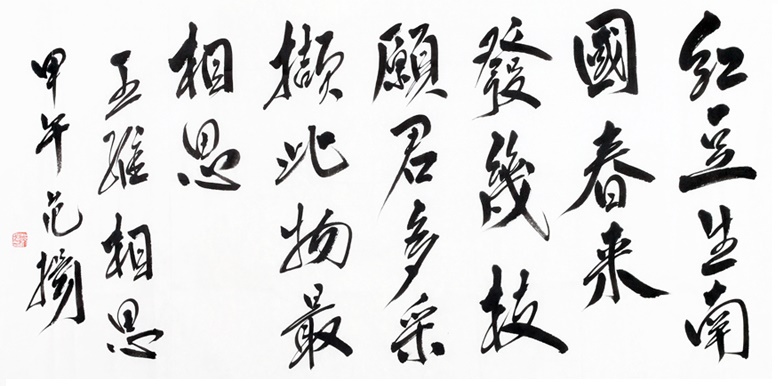 紅豆生南
國春来
發幾枝
願君多采
擷此物最
相思
王維相思
甲午范